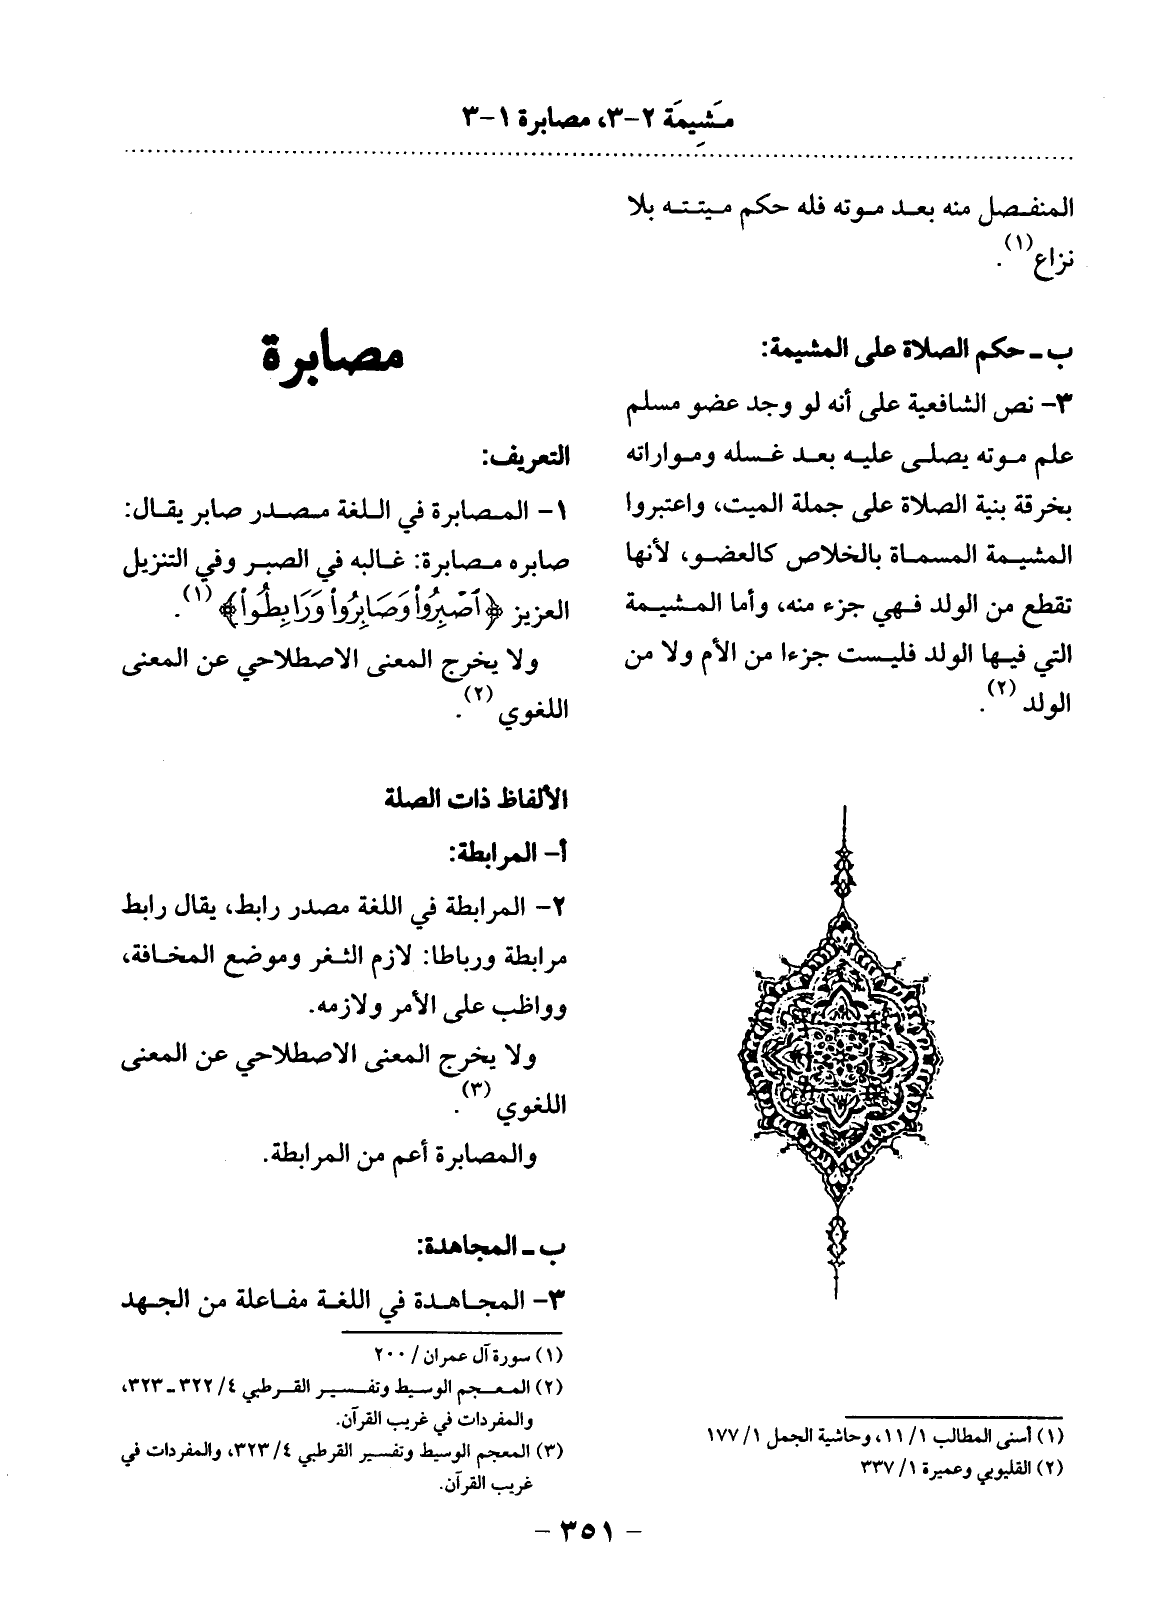 مَشِيمَة ٢-٣، مصابرة ١-٣
المنفصل منه بعد موته فله حكم ميتته بلا
نزاع(١).
ب ـ حكم الصلاة على المشيمة:
٣- نص الشافعية على أنه لو وجد عضو مسلم
علم موته يصلى عليه بعد غسله ومواراته
بخرقة بنية الصلاة على جملة الميت، واعتبروا
المشيمة المسماة بالخلاص كالعضو، لأنها
تقطع من الولد فهي جزء منه، وأما المشيمة
التي فيها الولد فليست جزءا من الأم ولا من
الولد(٢).
(١) أسنى المطالب ١/ ١١، وحاشية الجمل ١/ ١٧٧
(٢) القليوبي وعميرة ١/ ٣٣٧
مصابرة
التعريف:
١- المصابرة في اللغة مصدر صابر يقال:
صابره مصابرة: غالبه في الصبر وفي التنزيل
العزيز ﴿ٱصْبِرُوا۟ وَصَابِرُوا۟ وَرَابِطُوا۟﴾(١).
ولا يخرج المعنى الاصطلاحي عن المعنى
اللغوي(٢).
الألفاظ ذات الصلة
أ- المرابطة:
٢- المرابطة في اللغة مصدر رابط، يقال رابط
مرابطة ورباطا: لازم الثغر وموضع المخافة،
وواظب على الأمر ولازمه.
ولا يخرج المعنى الاصطلاحي عن المعنى
اللغوي(٣).
والمصابرة أعم من المرابطة.
ب ـ المجاهدة:
٣- المجاهدة في اللغة مفاعلة من الجهد
(١) سورة آل عمران / ٢٠٠
(٢) المعجم الوسيط وتفسير القرطبي ٤/ ٣٢٢ ـ ٣٢٣،
والمفردات في غريب القرآن.
(٣) المعجم الوسيط وتفسير القرطبي ٤/ ٣٢٣، والمفردات في
غريب القرآن.
- ٣٥١ -